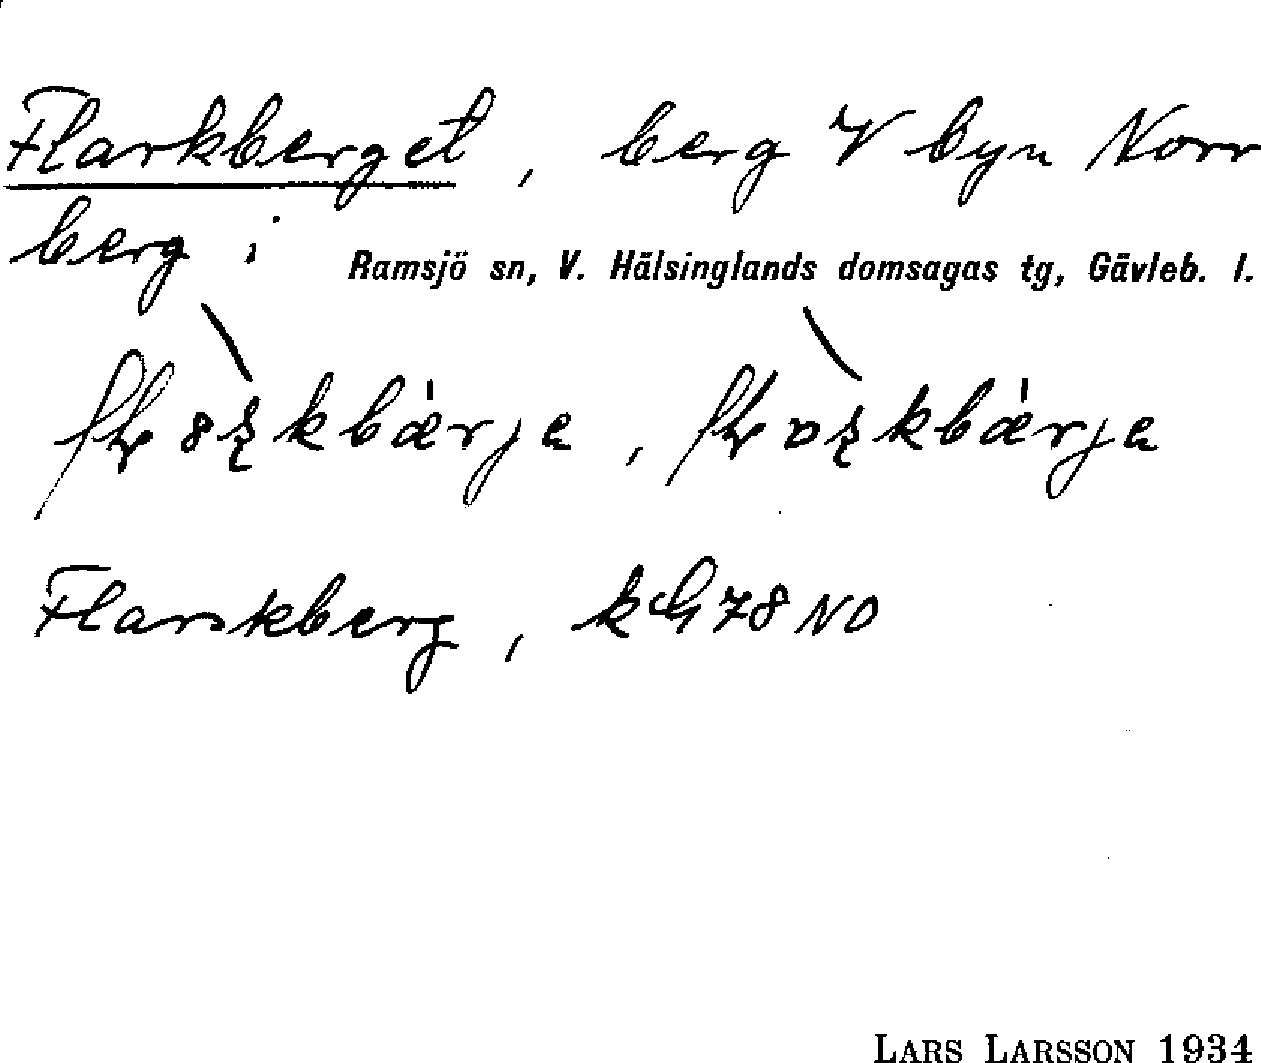 Flarkberget, berg V byn Norr
berg i Ramsjö sn, V. Hälsinglands domsagas tg, Gävleb. l.
Flarskberg, kG78NO
LARS LARSSON 1934